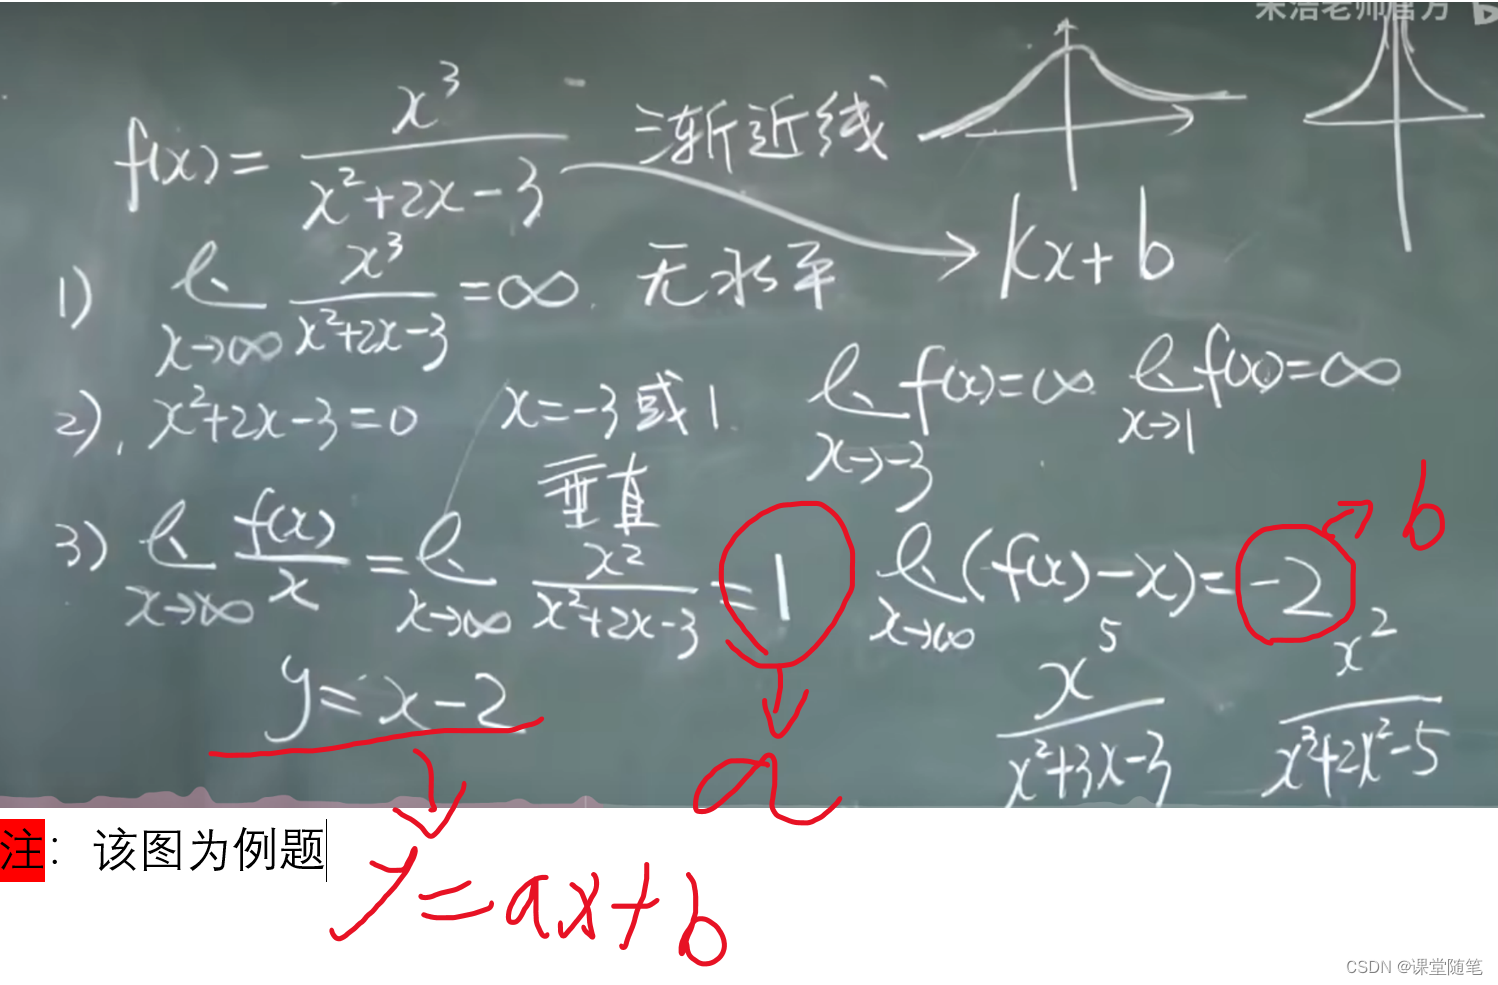 宋浩老师官方
f(x) = x³ / (x²+2x-3) 渐近线
kx+b
1) lim x→∞ x³ / (x²+2x-3) = ∞. 无水平
2). x²+2x-3=0 x=-3或1. lim x→-3 f(x)=∞ lim x→1 f(x)=∞
垂直
3) lim x→∞ f(x)/x = lim x→∞ x² / (x²+2x-3) = 1 lim x→∞ (f(x)-x) = -2 b
y=x-2
x⁵ / (x²+3x-3) x² / (x³+2x²-5)
a
注：该图为例题
y=ax+b
CSDN @课堂随笔